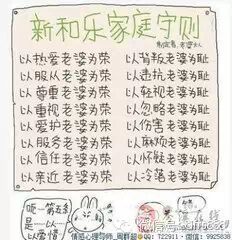 新和乐家庭守则
制定者：老婆大人
以热爱老婆为荣 以背叛老婆为耻
以服从老婆为荣 以违抗老婆为耻
以尊重老婆为荣 以轻视老婆为耻
以重视老婆为荣 以忽略老婆为耻
以爱护老婆为荣 以伤害老婆为耻
以服务老婆为荣 以麻烦老婆为耻
以信任老婆为荣 以怀疑老婆为耻
以亲近老婆为荣 以冷落老婆为耻
呃…第五条
是……以……
以爱情